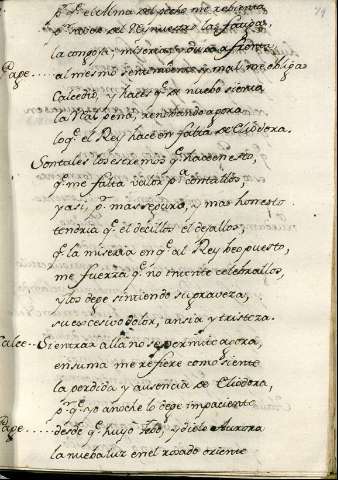 pr. qe. el Alma del pecho me rebienta
la congoja, miseria, y dura afrenta
Pape.... al mesmo sentimiento, y mal me obligas
Calcedio, y haces qe. de nuebo sienta
la Real pena, renobando agora
lo qe. el Rey hace en falta de Eliodora.
Son tales los estremos qe. hace en esto,
qe. me falta valor pa. contallos,
y asi, pr. mas seguro, y mas honesto
tendria qe. el decillos el dejallos;
qe. la miseria en qe. al Rey beo puesto,
me fuerza qe. no intente celebrallos,
y los deje sintiendo su graveza,
su excesivo dolor, ansia y tristeza.
Calce.. Si entrar allá no se permite agora,
en suma me refiere como siente
la perdida y ausencia de Eliodora,
pr. qe. yo anoche lo deje impaciente
Pape...... desde qe. huyó Febo, y dió le Aurora
la nueba luz en el rosado oriente